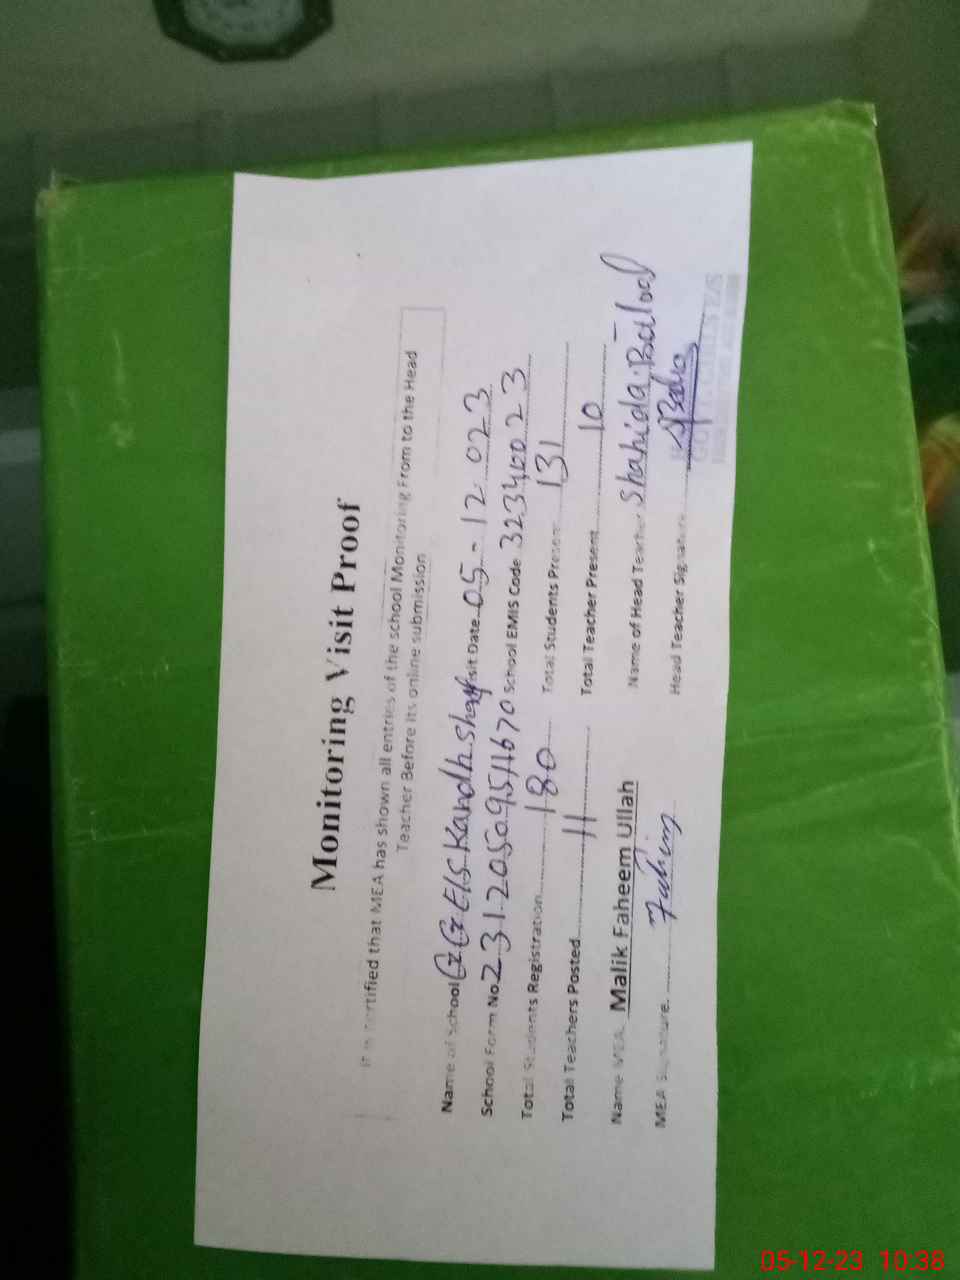 Monitoring Visit Proof
It is certified that MEA has shown all entries of the school Monitoring From to the Head
Teacher Before its online submission
Name of School GGE/S Kandh Sharif Visit Date 05-12 023
School Form No. 23120509511670 School EMIS Code 32340023
Total Students Registration 180 Total Students Present 131
Total Teachers Posted 11 Total Teacher Present 10
Name MEA. Malik Faheem Ullah Name of Head Teacher Shahida Batool
MEA Signature. Fahim Head Teacher Signature
05-12-23 10:38